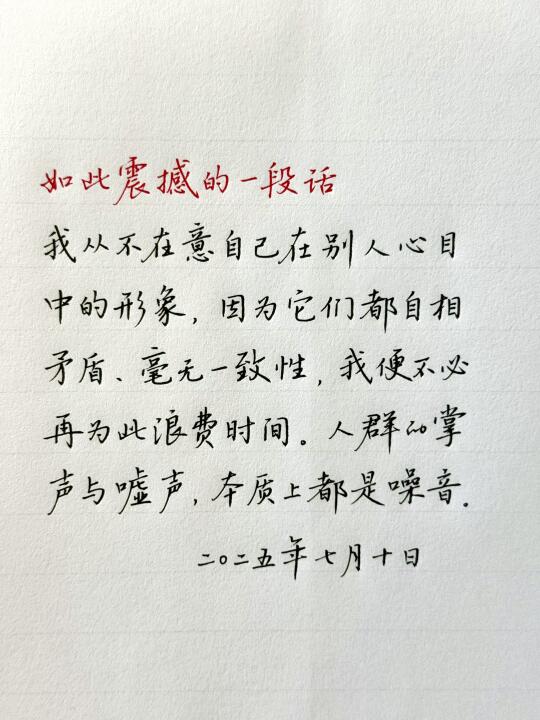 如此震撼的一段话
我从不在意自己在别人心目
中的形象，因为它们都自相
矛盾、毫无一致性，我便不必
再为此浪费时间。人群的掌
声与嘘声，本质上都是噪音.
二〇二五年七月十日